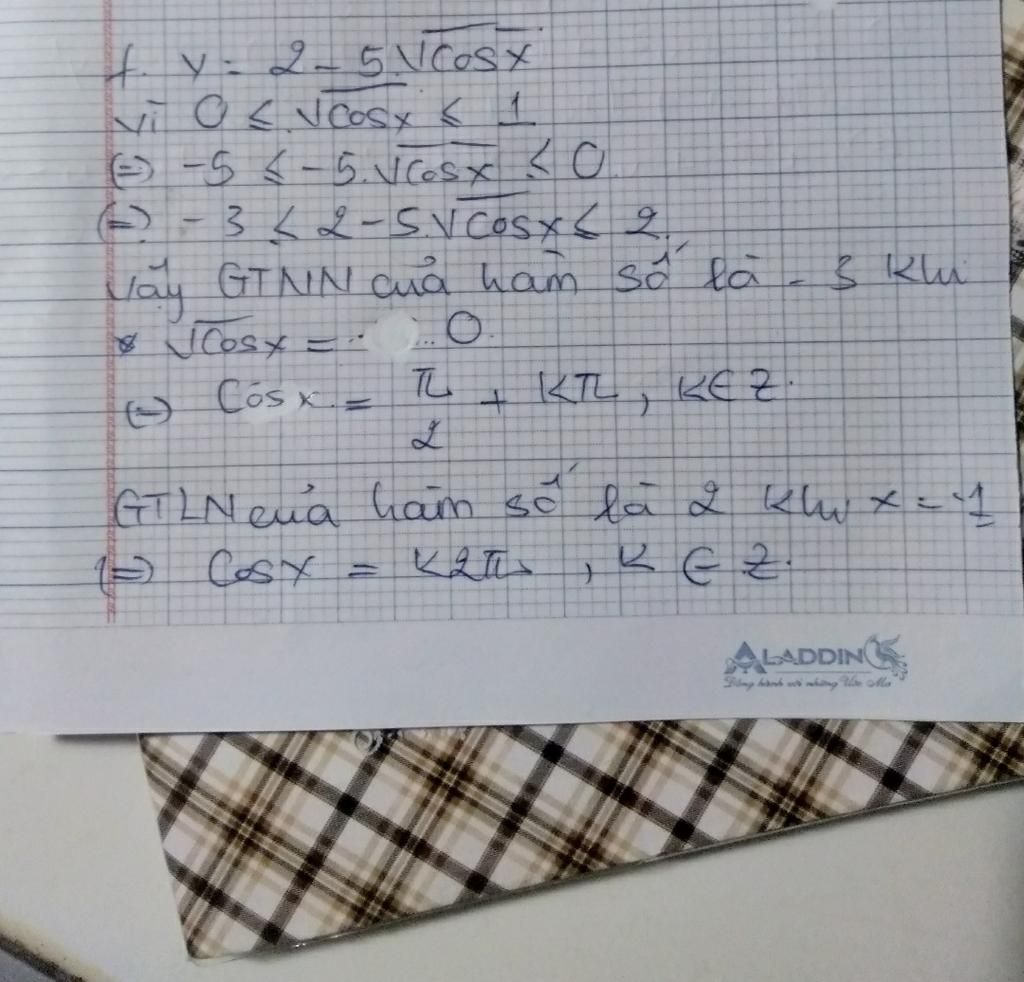 f. y = 2 - 5.√cosx
vì 0 ≤ √cosx ≤ 1
(=) -5 ≤ -5.√cosx ≤ 0.
(=) -3 ≤ 2 - 5.√cosx ≤ 2.
Vậy GTNN của hàm số là - 3 khi
√cosx = 0.
(=) Cosx = π/2 + kπ, k∈Z.
GTLN của hàm số là 2 khi x = -1
(=) Cosx = k2π, k ∈ Z.
ALADDIN
Đồng hành với những Ước Mơ